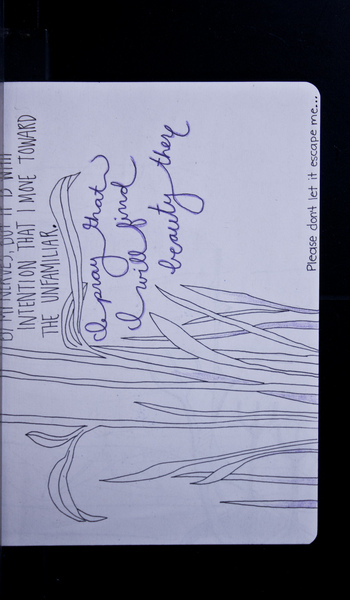 MY NERVES, BUT IT IS WITH
INTENTION THAT I MOVE TOWARD
THE UNFAMILIAR.
I pray that
I will find
beauty there
Please don't let it escape me...